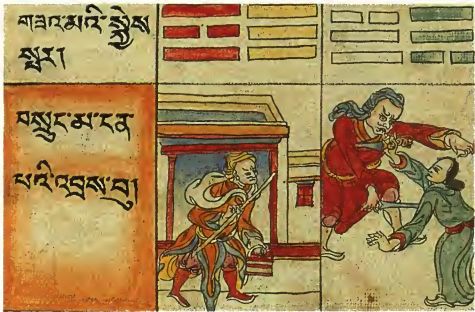 གཟའ་མའི་སྐྱེས
སྤར།
བསྲུང་མ་ངན་
པའི་འབྲས་བུ།